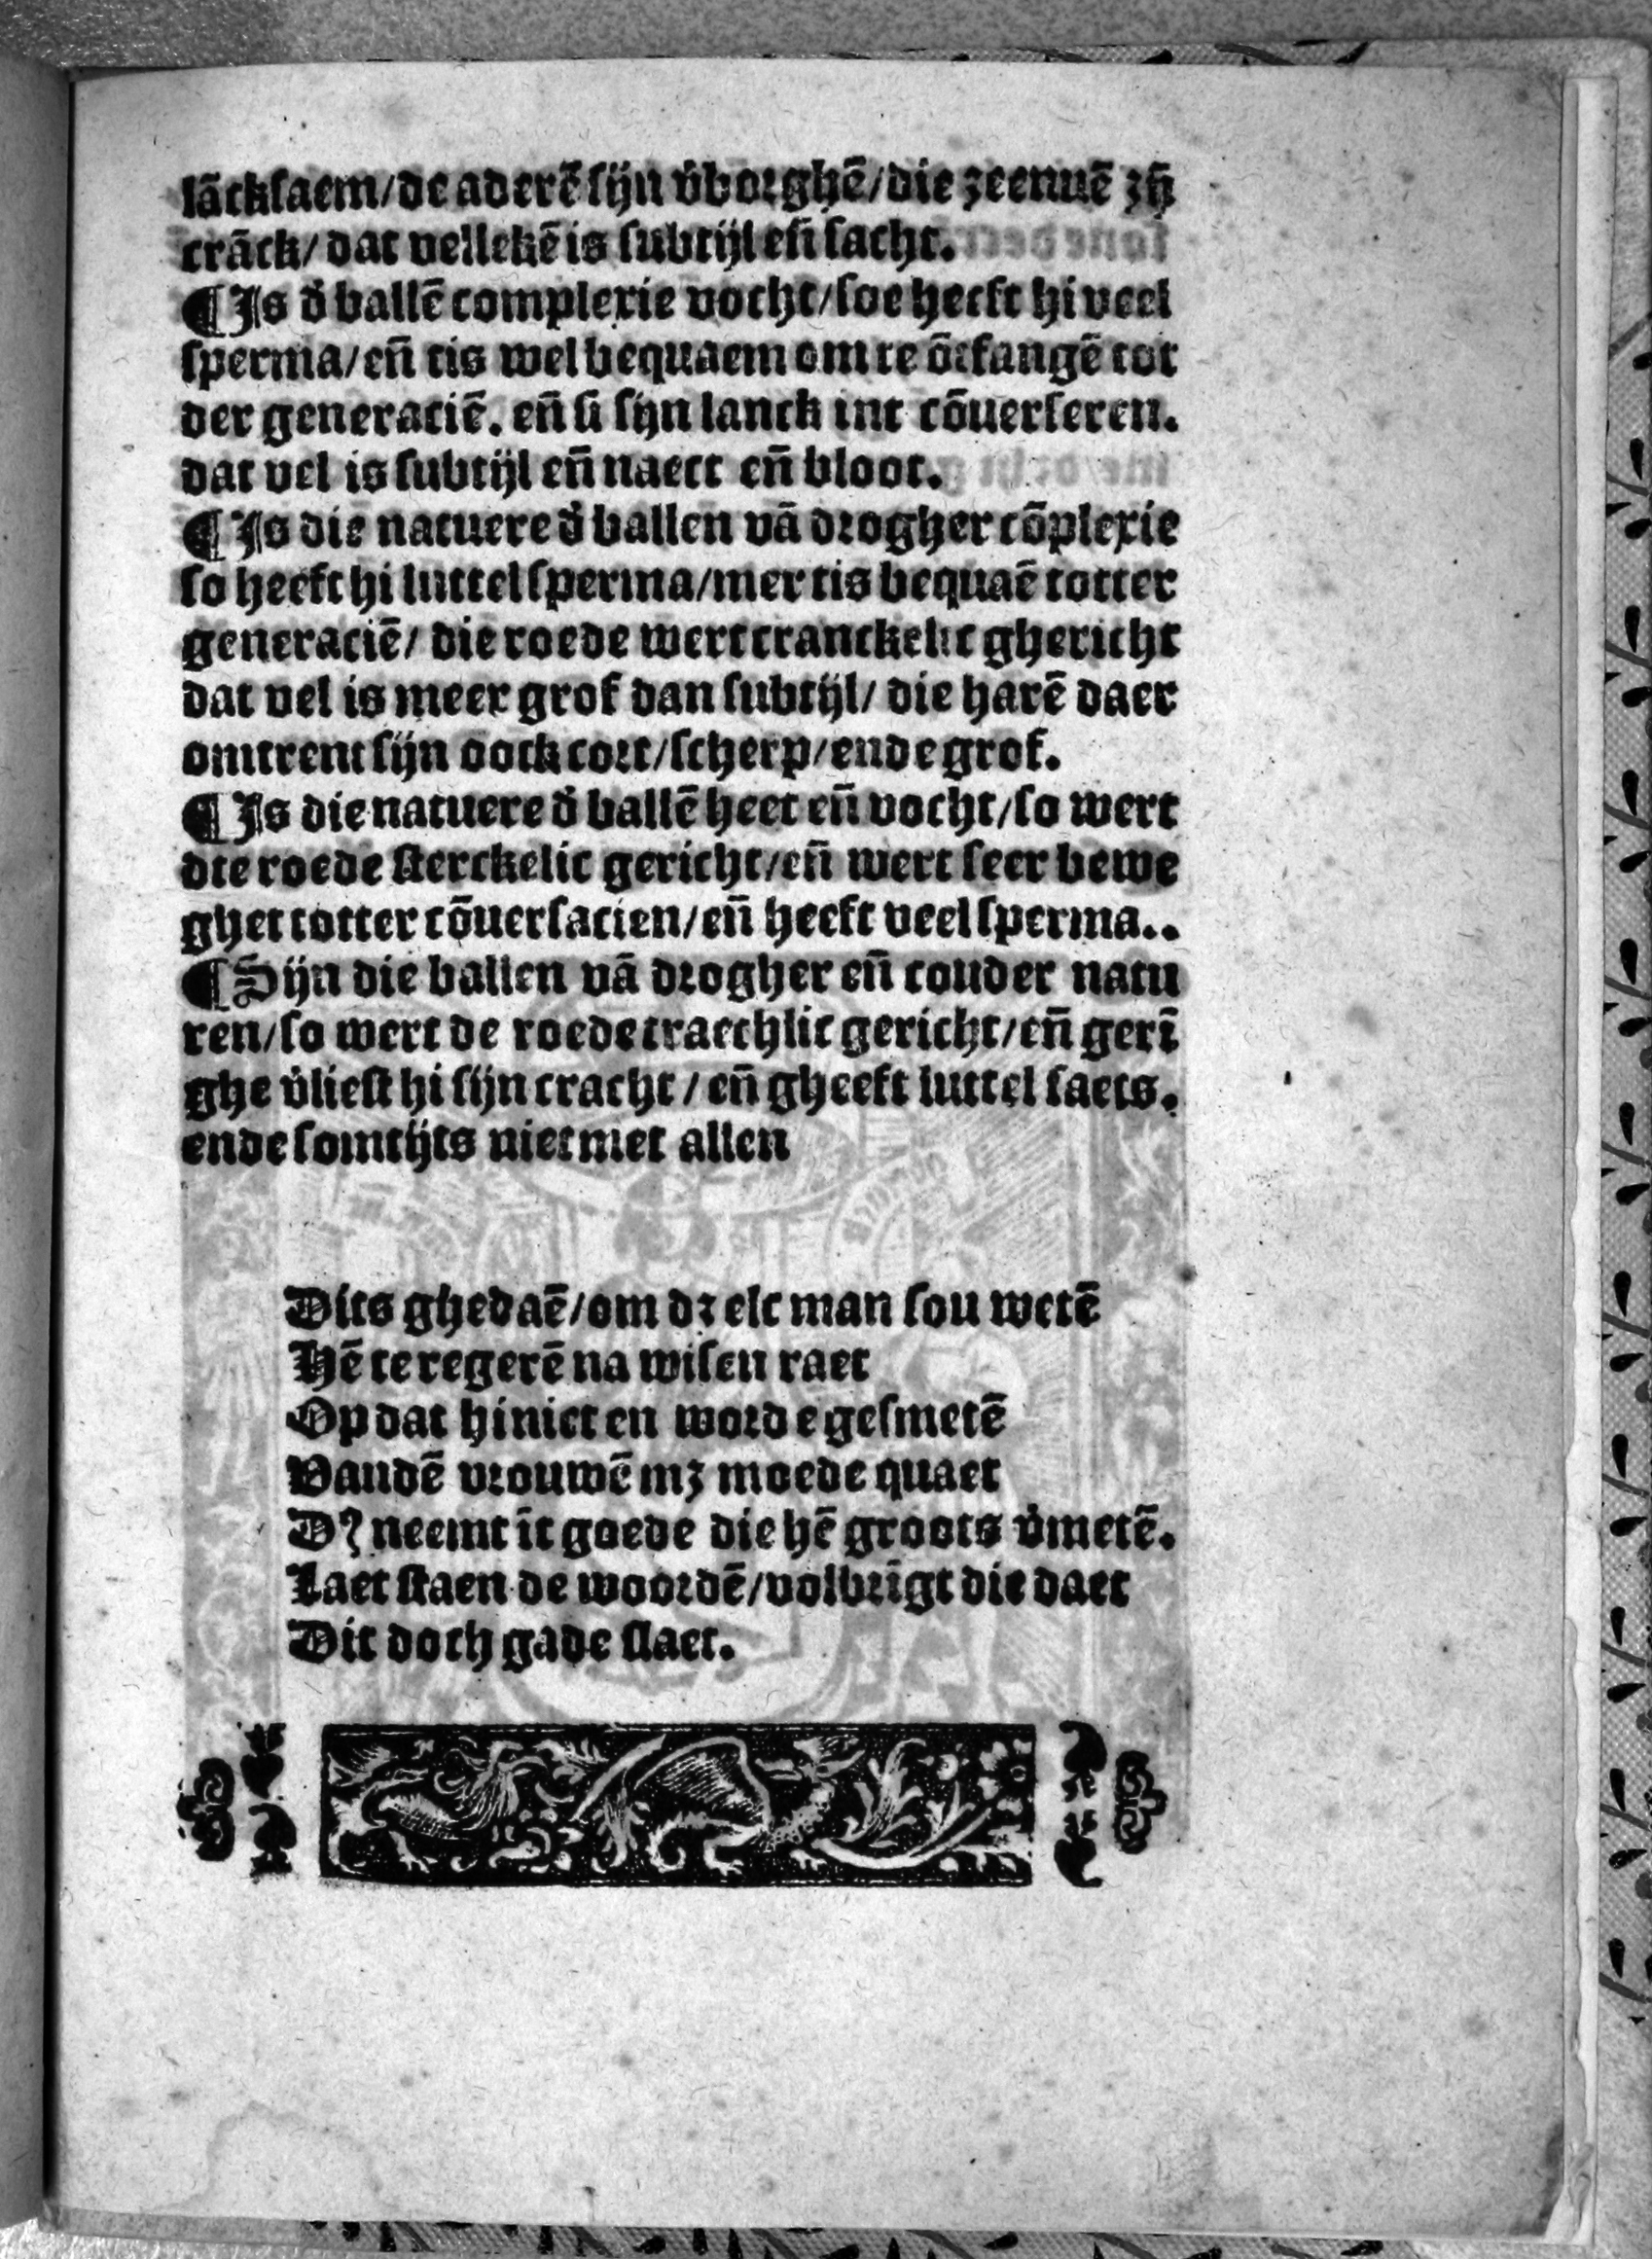 lācksaem/de aderē sijn v̄borghē/die zeenuē zȳ
crāck/ dat vellekē is subtijl eñ sacht.
¶ Is d̄ ballē complexie vocht/soe heeft hi veel
sperma/eñ tis wel bequaem om te ōtfangē tot
der generaciē. eñ si sijn lanck int cōuerseren.
dat vel is subtijl eñ naect eñ bloot.
¶ Is die natuere d̄ ballen vā drogher cōplexie
so heeft hi luttel sperma/mer tis bequaē totter
generaciē/ die roede wert cranckelic ghericht
dat vel is meer grof dan subtijl/ die harē daer
omtrent sijn oock cort/scherp/ende grof.
¶ Is die natuere d̄ ballē heet eñ vocht/so wert
die roede sterckelic gericht/eñ wert seer bewe
ghet totter cōuersacien/eñ heeft veel sperma..
¶ Sijn die ballen vā drogher eñ couder natu
ren/so wert de roede traechlic gericht/eñ gerī
ghe v̄liest hi sijn cracht/eñ gheeft luttel saets.
ende somtijts niet met allen
Dits ghedaē/om dʒ elc man sou wetē
Hē te regerē na wisen raet
Op dat hi niet en worde gesmetē
Vandē vrouwē mʒ moede quaet
D? neemt īt goede die hē groots v̄metē.
Laet staen de woordē/volbrīgt die daet
Dit doch gade slaet.